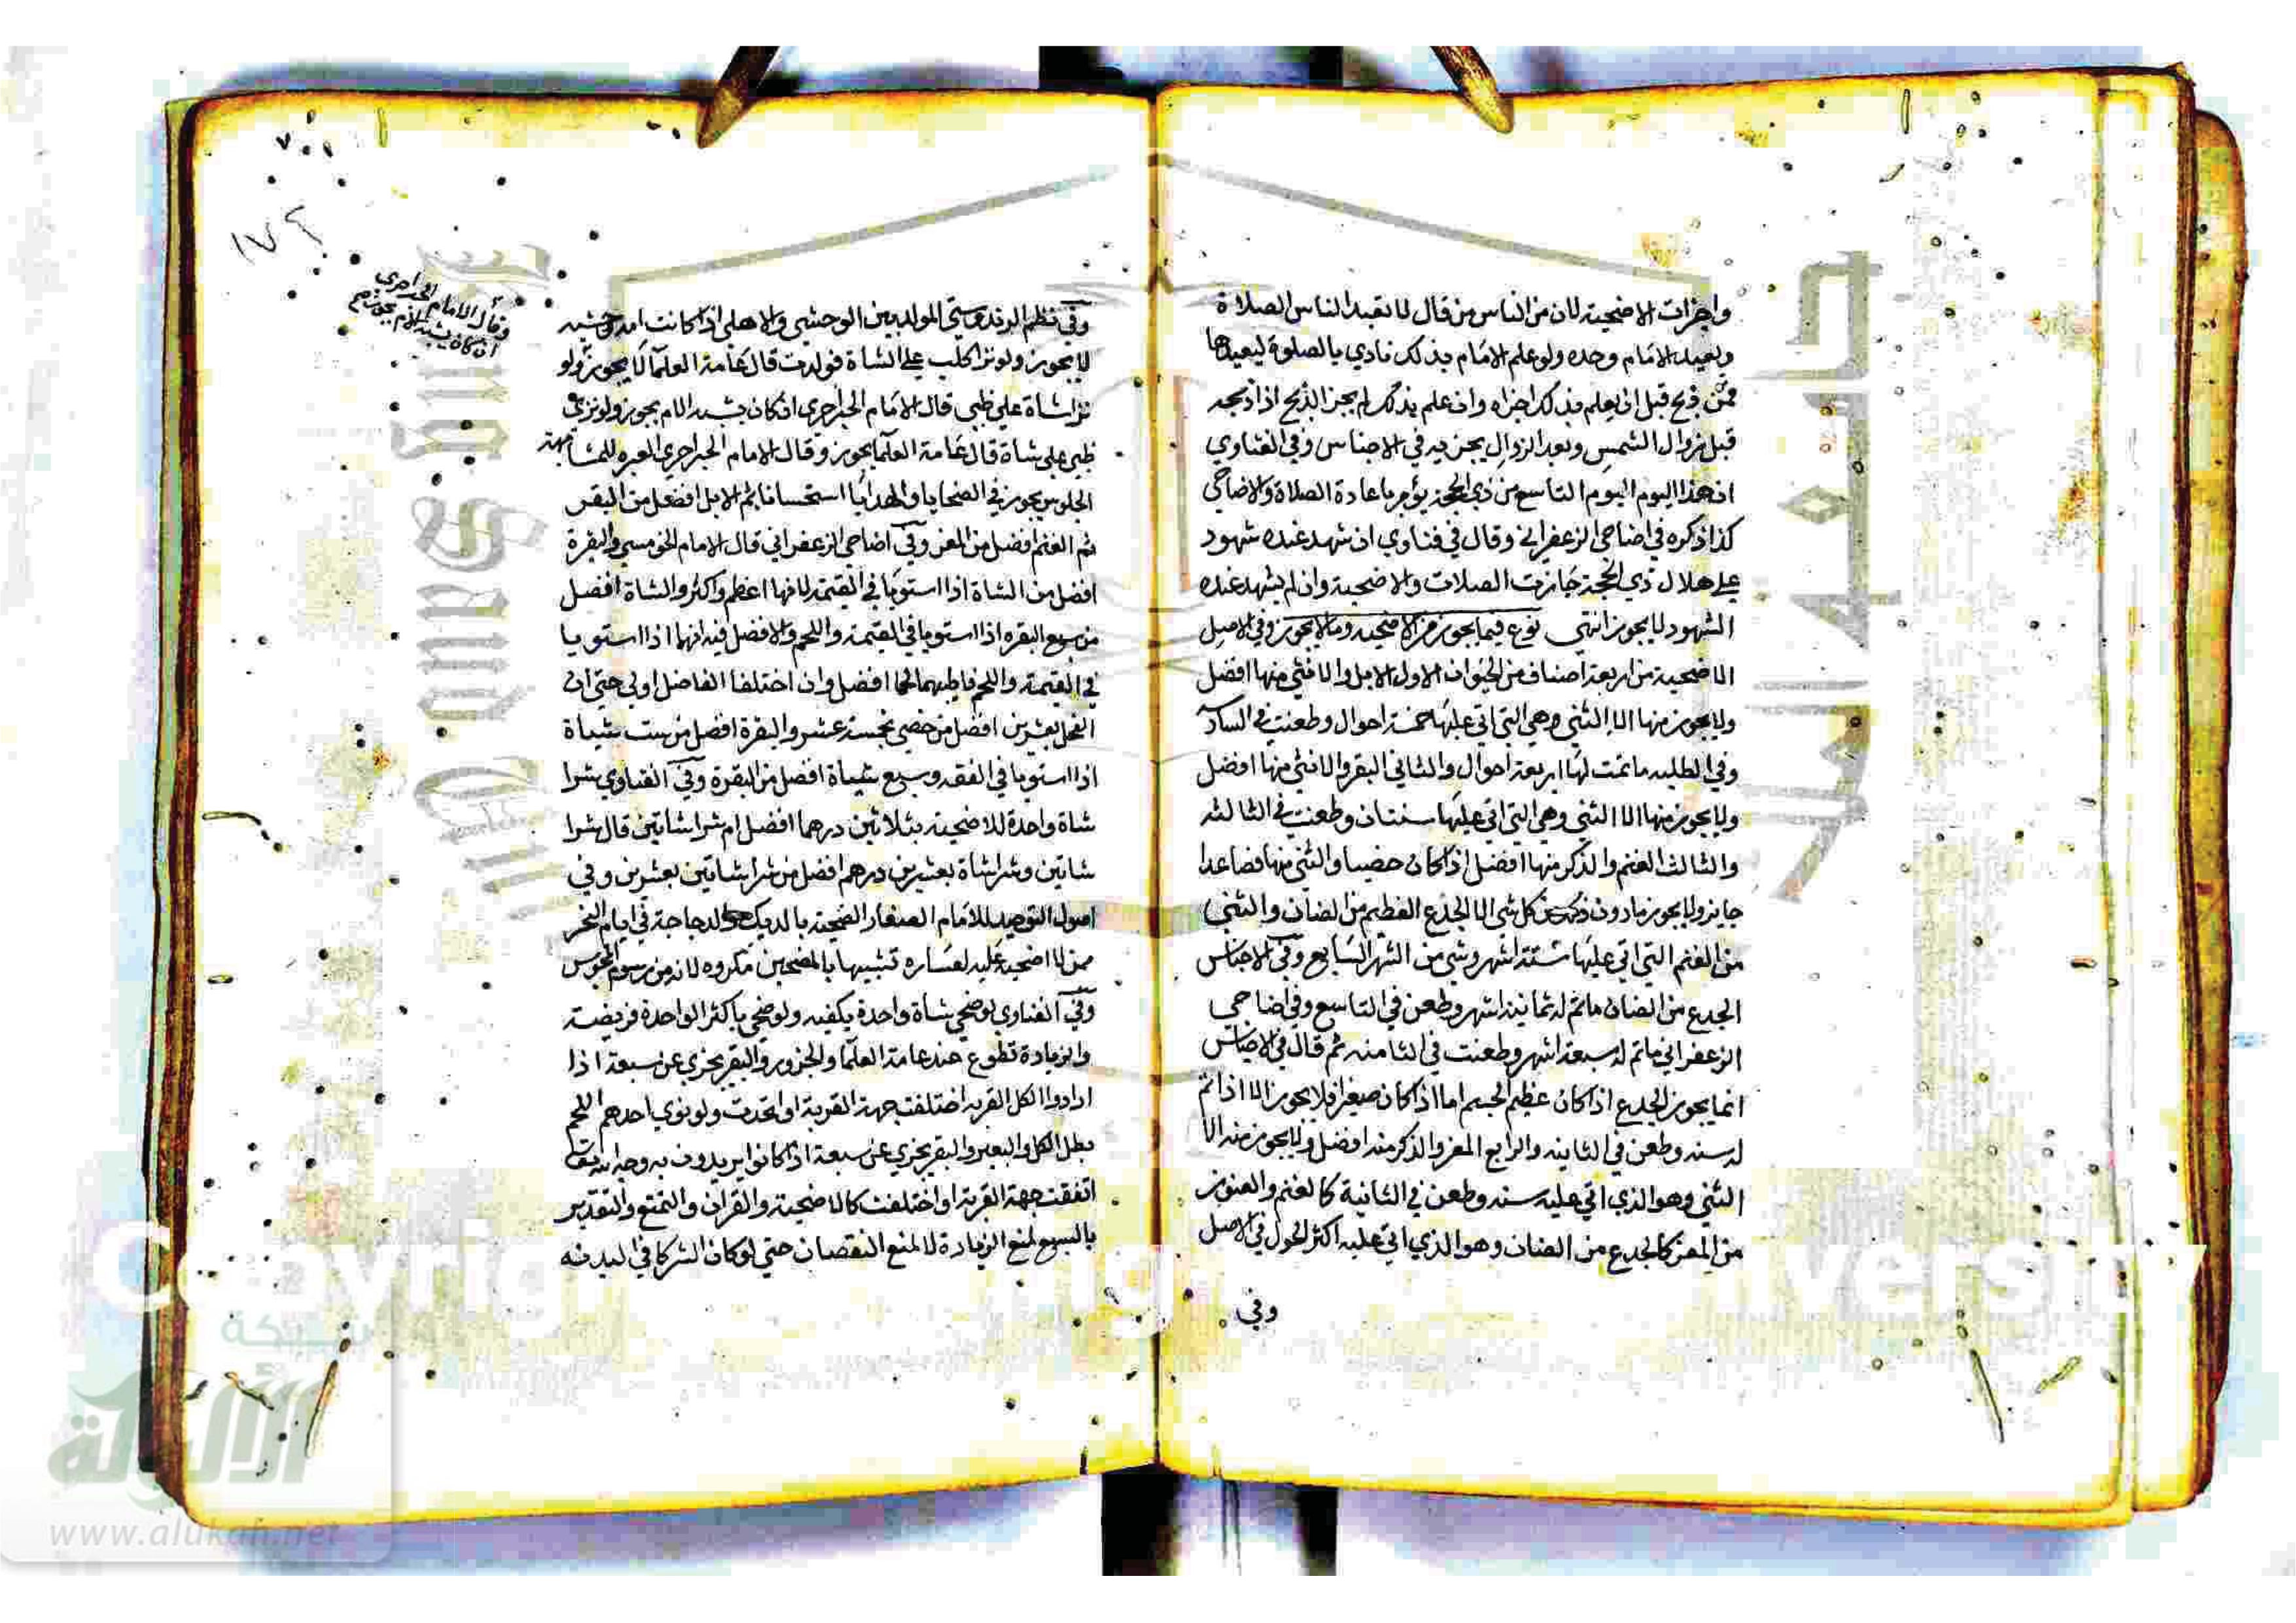 واجزات الاضحية لان من الناس من قال لا تعيد الناس الصلاة
ويعيد الامام وحده ولو علم الامام بذلك نادي بالصلوة ليعيدها
فمن ذبح قبل ان يعلم بذلك اجزاه وان علم بذلك لم يجز الذبح اذا ذبحه
قبل زوال الشمس وبعد الزوال يجزيه في الاجناس وفي الفتاوي
ان هذا اليوم اليوم التاسع من ذي الحجة يؤمر باعادة الصلاة والاضاحي
كذا ذكره في اضاحي الزعفراني وقال في فتاوي ان شهد عنده شهود
علي هلال ذي الحجة جازت الصلات والاضحية وان لم يشهد عنده
الشهود لا يجوز انتهي نوع فيما يجوز من الاضحية وما لا يجوز وفي الاصل
الاضحية من اربعة اصناف من الحيوان الاول الابل والانثي منها افضل
ولا يجوز منها الا الثني وهي التي اتي عليها خمسة احوال وطعنت في الساد
وفي الطلبه ما تمت لها اربعة احوال والثاني البقر والانثي منها افضل
ولا يجوز منها الا الثني وهي التي اتي عليها سنتان وطعنت في الثالثه
والثالث الغنم والذكر منها افضل اذا كان خصيا والثني منها فصاعدا
جايز ولا يجوز ما دون ذلك من كل شي الا الجذع العظيم من الضان والثني
من الغنم التي اتي عليها ستة اشهر وشي من الشهر السابع وفي الاجناس
الجدع من الضان ما تم له ثمانية اشهر وطعن في التاسع وفي اضاحي
الزعفراني ما تم له سبعة اشهر وطعنت في الثامنه ثم قال في الاجناس
انما يجوز الجدع اذا كان عظيم الجسم اما اذا كان صغيرا فلا يجوز الا اذا تم
له سنه وطعن في الثانيه والرابع المعز والذكر منه افضل ولا يجوز منه الا
الثني وهو الذي اتي عليه سنه وطعن في الثانية كالغنم والعنوز
من المعز كالجدع من الضان وهو الذي اتي عليه اكثر الحول في الاصل
وفي
١٧٢
وقال الامام الجراجري
ان كان يشبه الام يجوز صح
وفي نظم الزندويستي المولد بين الوحشي والاهلي اذا كانت امه وحشيه
لا يجوز ولو نزا كلب علي الشاة فولدت قال عامة العلما لا يجوز ولو
نزا شاة علي ظبي قال الامام الجراجري ان كان يشبه الام يجوز ولو نزي
ظبي علي شاة قال عامة العلما يجوز وقال الامام الجراجري العبره للمشابهة
الجلوس يجوز في الضحايا والهدايا استحسانا ثم الابل افضل من البقر
ثم الغنم افضل من المعز وفي اضاحي الزعفراني قال الامام والبقرة
افضل من الشاة اذا استويا في القيمة لانها اعظم واكثر والشاة افضل
من سبع البقره اذا استويا في القيمة واللحم والافضل فيه انهما اذا استويا
في القيمة واللحم فاطيبهما لحما افضل وان اختلفا الفاضل اولي حتي ان
الفحل بعشرين افضل من خصي بخمسة عشر والبقرة افضل من ست شياة
اذا استويا في الفقه وسبع شياة افضل من البقرة وفي الفتاوي شرا
شاة واحدة للاضحية بثلاثين درهما افضل ام شرا شاتين قال شرا
شاتين وشرا شاة بعشرين درهم افضل من شرا شاتين بعشرين وفي
اصول التوحيد للامام الصفار الضحية بالديك والدجاجة في ايام النحر
ممن لا اضحية عليه لعساره تشبيها بالمضحين مكروه لانه من رسوم المجوس
وفي الفتاوي لو ضحي بشاة واحدة يكفيه ولو ضحي باكثر الواحدة فريضة
والزيادة تطوع عند عامة العلما والجزور والبقر يجزي عن سبعة اذا
ارادوا الكل القربه اختلفت جهة القربة او اتحدت ولو نوي احدهم اللحم
بطل الكل والبعير والبقر يجزي عن سبعة اذا كانوا يريدون به وجه الله تعا
اتفقت جهة القربة او اختلفت كالاضحية والقران والتمتع والتقدير
بالسبع لمنع الزيادة لا لمنع النقصان حتي لو كان الشركا في البدنه
Copyrig
versity
شبكة
الألوكة
www.alukah.net